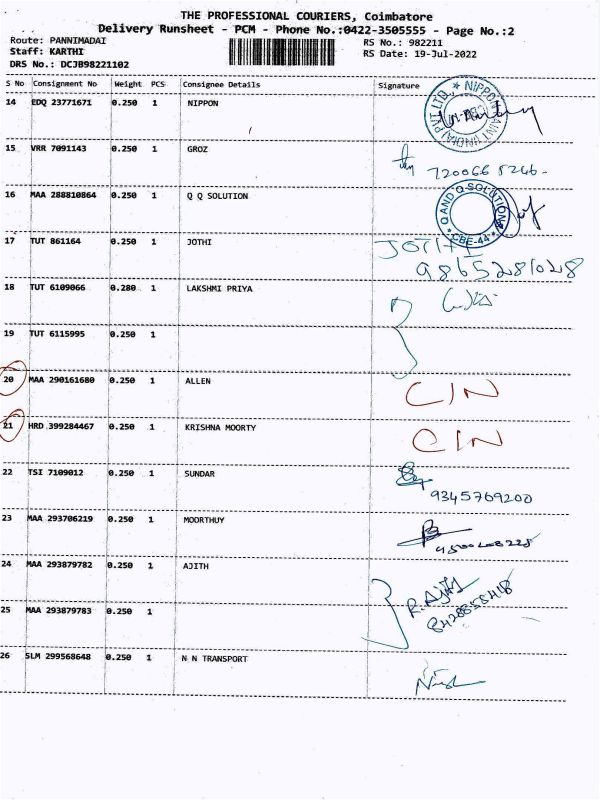 THE PROFESSIONAL COURIERS, Coimbatore
Delivery Runsheet - PCM - Phone No.:0422-3505555 - Page No.:2
Route: PANNIMADAI
Staff: KARTHI
DRS No.: DCJB98221102
RS No.: 982211
RS Date: 19-Jul-2022
S No Consignment No Weight PCS Consignee Details Signature
14 EDQ 23771671 0.250 1 NIPPON
NIPPON PAINT PVT LTD. CBE-
15 VRR 7091143 0.250 1 GROZ
7200665246-
16 MAA 288810864 0.250 1 Q Q SOLUTION
Q AND Q SOLUTIONS CBE-44
17 TUT 861164 0.250 1 JOTHI JOTHI
9865281028
18 TUT 6109066 0.280 1 LAKSHMI PRIYA
19 TUT 6115995 0.250 1
20 MAA 290161680 0.250 1 ALLEN CIN
21 HRD 399284467 0.250 1 KRISHNA MOORTY CIN
22 TSI 7109012 0.250 1 SUNDAR
9345769200
23 MAA 293706219 0.250 1 MOORTHUY
24 MAA 293879782 0.250 1 AJITH
R. Ajith
25 MAA 293879783 0.250 1
26 SLM 299568648 0.250 1 N N TRANSPORT